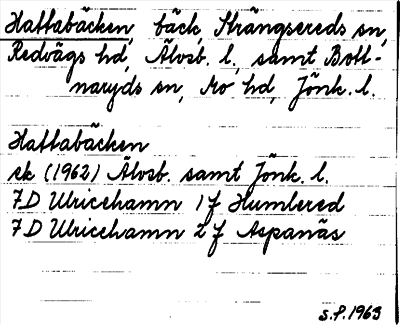 Hattabäcken, bäck, Strängsereds sn,
Redvägs hd, Älvsb. l., samt Bott-
naryds sn, Mo hd, Jönk. l.
Hattabäcken
ek (1962) Älvsb. samt Jönk. l.
7D Ulricehamn 1 f Humlered
7D Ulricehamn 2 f Aspanäs
S.P. 1963